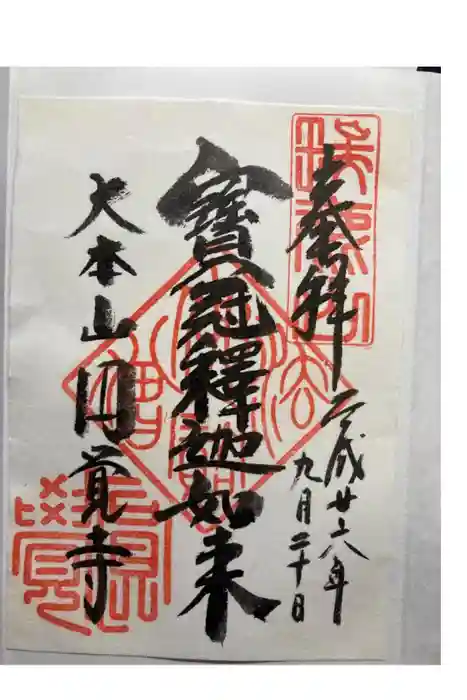 瑞鹿山
奉拝
平成廿六年
九月二十日
寶冠釋迦如来
大本山円覚寺